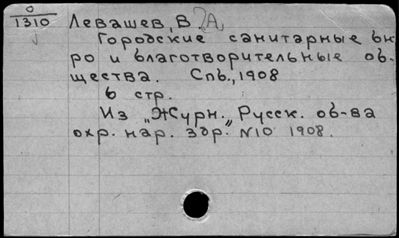 О
1310
Левашев, В. ?А.
Городские санитарные бю
ро и благотворительные об-
щества. Спб., 1908
6 стр.
Из "Журн." Русск. об-ва
охр. нар. здр. N10 1908.